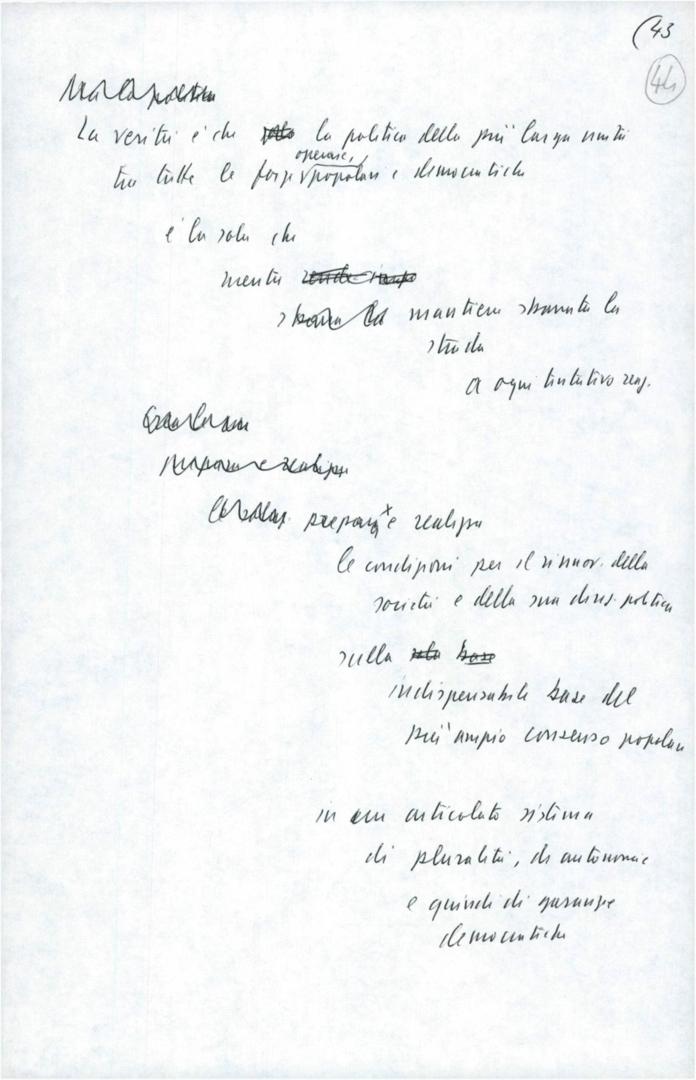 (43
44
Ma la politica
La verità è che solo la politica della più larga unità
operaie,
tra tutte le forze popolari e democratiche
è la sola che
mentre rende
sbarra la mantiene sbarrata la
strada
a ogni tentativo reaz.
prepara e realizza
prepara e realizza
le condizioni per il rinnov. della
società e della sua direz. politica
sulla sola base
indispensabile base del
più ampio consenso popolare
in un articolato sistema
di pluralità, di autonomie
e quindi di garanzie
democratiche